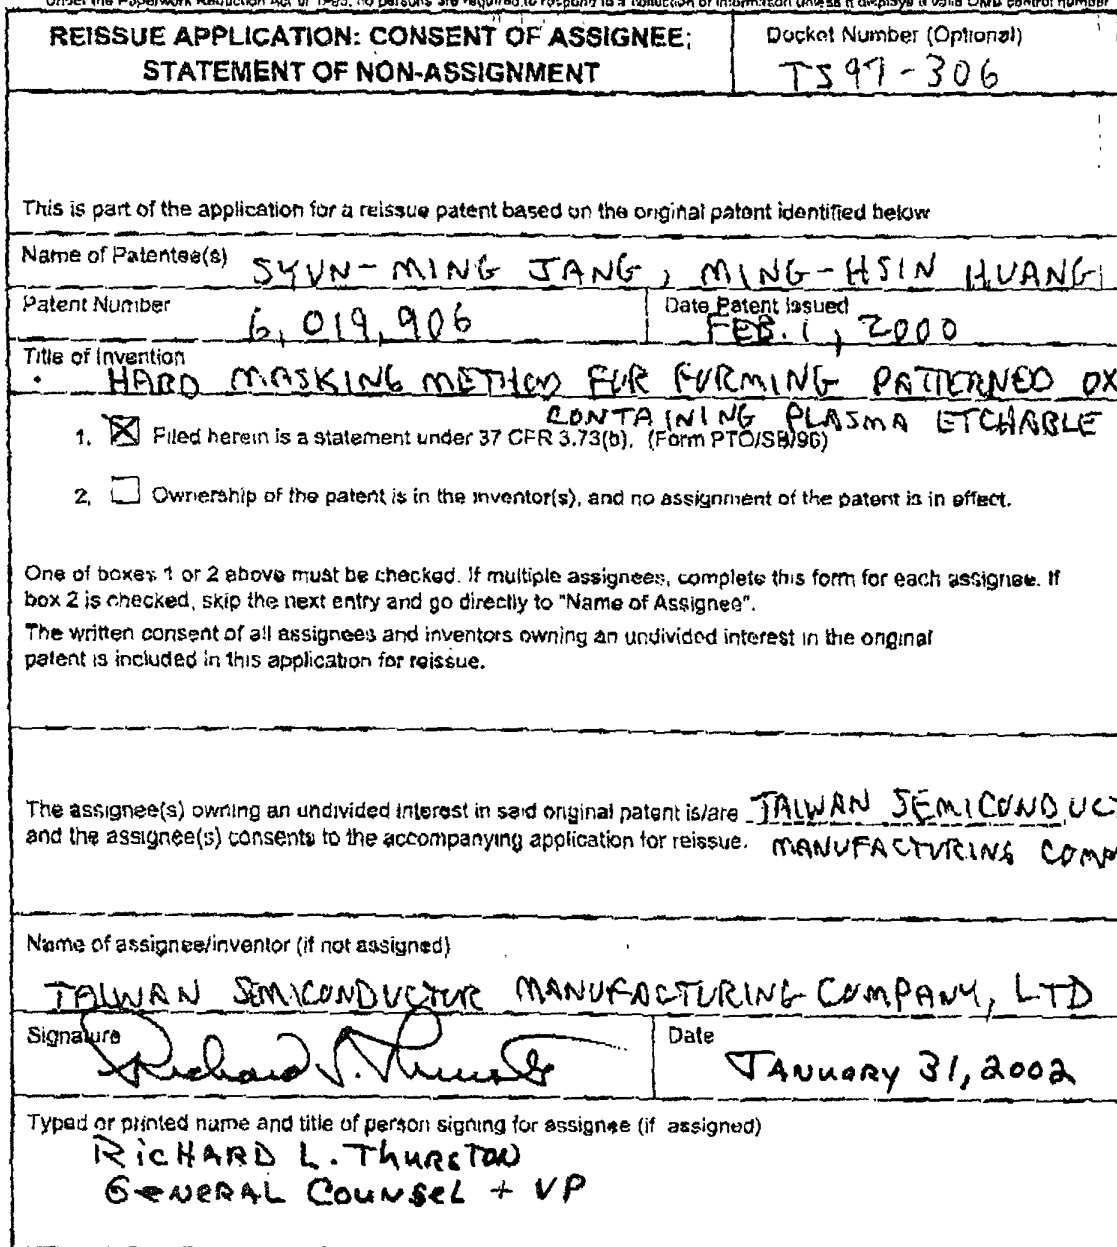 Under the Paperwork Reduction Act of 1995, no persons are required to respond to a collection of information unless it displays a valid OMB control number
REISSUE APPLICATION: CONSENT OF ASSIGNEE;
STATEMENT OF NON-ASSIGNMENT
Docket Number (Optional)
TS97-306
This is part of the application for a reissue patent based on the original patent identified below
Name of Patentee(s) SYUN-MING JANG, MING-HSIN HUANG
Patent Number 6,019,906
Date Patent Issued FEB. 1, 2000
Title of Invention
HARD MASKING METHOD FOR FORMING PATTERNED OX
CONTAINING PLASMA ETCHABLE
1. ☒ Filed herein is a statement under 37 CFR 3.73(b). (Form PTO/SB/96)
2. ☐ Ownership of the patent is in the inventor(s), and no assignment of the patent is in effect.
One of boxes 1 or 2 above must be checked. If multiple assignees, complete this form for each assignee. If
box 2 is checked, skip the next entry and go directly to "Name of Assignee".
The written consent of all assignees and inventors owning an undivided interest in the original
patent is included in this application for reissue.
The assignee(s) owning an undivided interest in said original patent is/are TAIWAN SEMICONDUCT
and the assignee(s) consents to the accompanying application for reissue. MANUFACTURING COMP
Name of assignee/inventor (if not assigned)
TAIWAN SEMICONDUCTOR MANUFACTURING COMPANY, LTD
Signature Richard L. Thurston
Date JANUARY 31, 2002
Typed or printed name and title of person signing for assignee (if assigned)
RICHARD L. THURSTON
GENERAL COUNSEL + VP